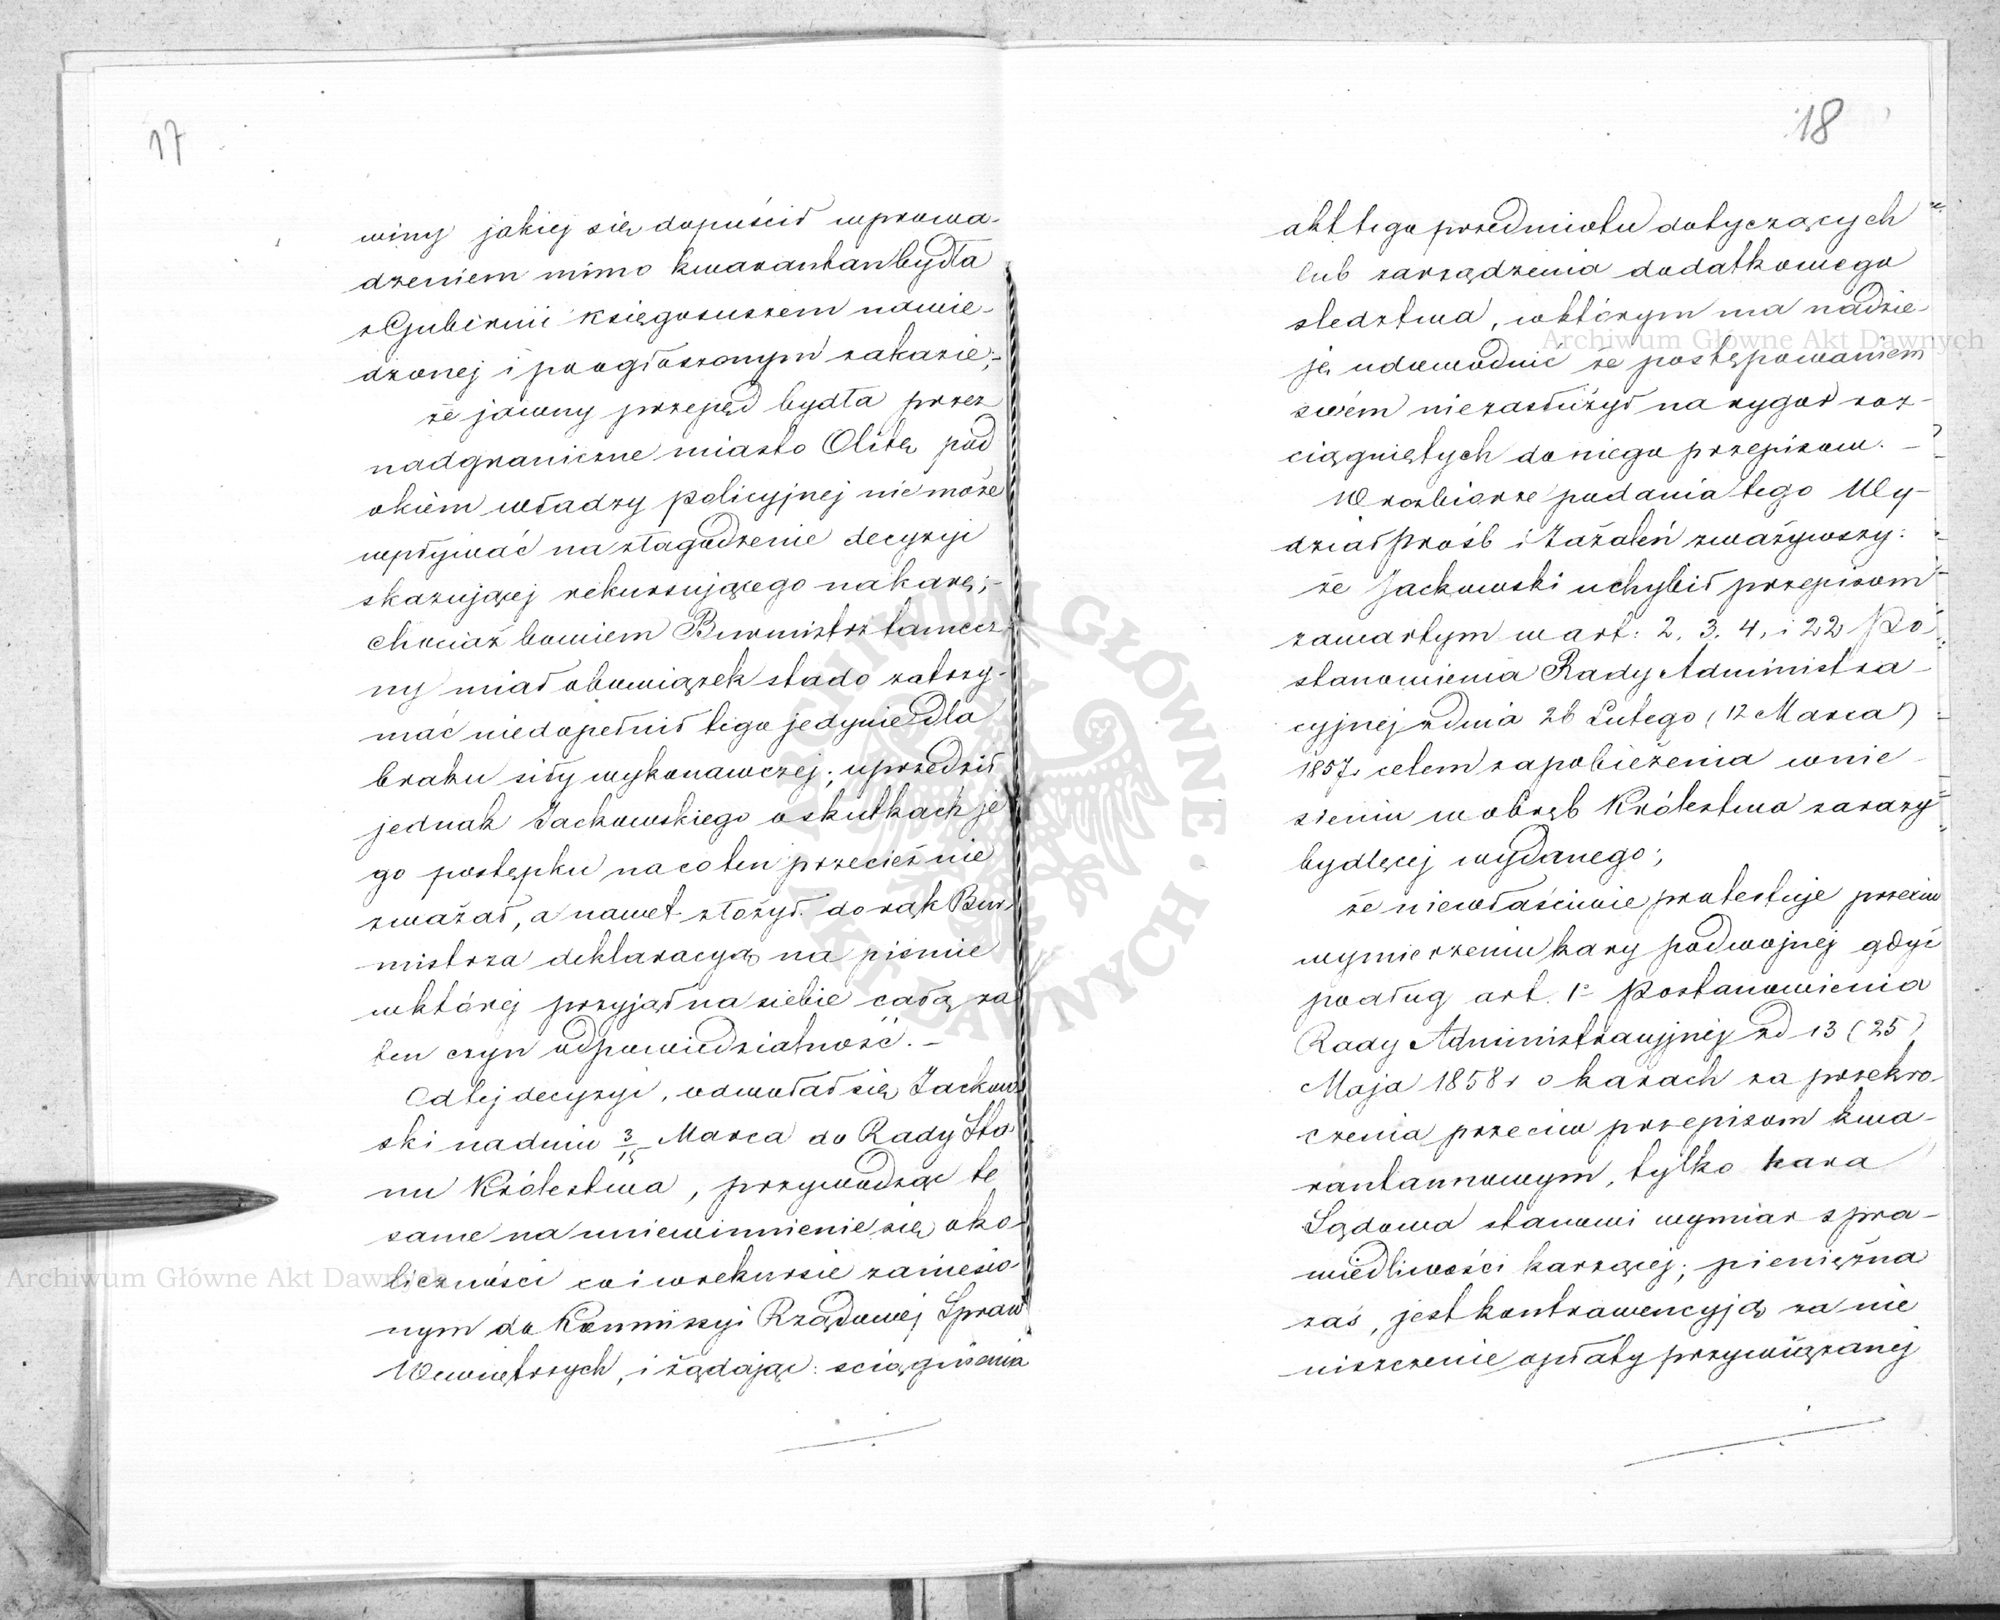 17
winy jakiej się dopuścił wprowa-
dzeniem mimo kwarantan bydła
z Gubernii księgosuszem nawie-
dzonej i po ogłoszonym zakazie;-
że jawny przepęd bydła przez
nadgraniczne miasto Olitę pod
okiem władzy policyjnej nie może
wpływać na złagodzenie decyzji
skazującej rekursującego na karę;-
chociaż bowiem Burmistrz tamecz
ny miał obowiązek stado zatrzy-
mać niedopełnił tego jedynie dla
braku siły wykonawczej; uprzedził
jednak Jackowskiego o skutkach je
go postępku na co ten przecież nie
zważał, a nawet złożył do rąk Bur-
mistrza deklaracyą na piśmie
w której przyjął na siebie całą za
ten czyn odpowiedzialność. -
Od tej decyzyi, odwołał się Jackow
ski na dniu 3/15 Marca do Rady Sta
nu Królestwa, przywodząc te
same na uniewinnienie się oko-
liczności co i w rekursie zaniesio
nym do Kommissyi Rządowej Spraw
Wewnętrznych, i żądając: ściągnienia
18
akt tego przedmiotu dotyczących
lub zarządzenia dodatkowego
śledztwa, w którym ma nadzie-
ję udowodnić że postępowaniem
swém nie zasłużył na rygor roz-
ciągniętych do niego przepisów. -
W rozbiorze podania tego Wy-
dział Próśb i Zażaleń zważywszy:
że Jackowski uchybił przepisom
zawartym w art: 2. 3. 4. i 22 Po-
stanowienia Rady Administra-
cyjnej z dnia 26 Lutego (12 Marca)
1857 r. celem zapobieżenia wnie-
sieniu w obręb Królestwa zarazy
bydlęcej wydanego;
że niewłaściwie protestuje przeciw
wymierzeniu kary podwójnej gdyż
podług art. 1º Postanowienia
Rady Administracyjnej z d 13 (25)
Maja 1858 r o karach za przekro-
czenia przeciw przepisom kwa-
rantannowym, tylko kara
Sądowa stanowi wymiar spra-
wiedliwości karzącej; pieniężna
zaś, jest kontrawencyją za nie
niszczenie opłaty przywiązanej
Archiwum Główne Akt Dawnych
Archiwum Główne Akt Dawnych
ARCHIWUM GŁÓWNE · AKT DAWNYCH ·